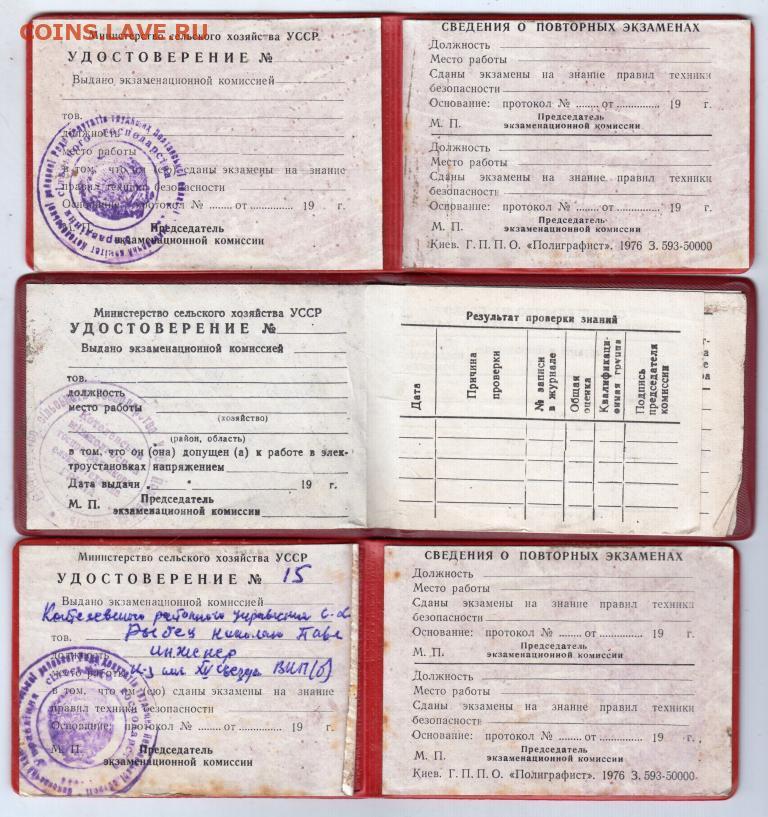 COINS.LAVE.RU
Министерство сельского хозяйства УССР
УДОСТОВЕРЕНИЕ №
Выдано экзаменационной комиссией
тов.
должность
место работы
в том, что он (ею) сданы экзамены на знание
правил техники безопасности
Основание: протокол № ........ от ............. 19 г.
М. П. Председатель
экзаменационной комиссии
СВЕДЕНИЯ О ПОВТОРНЫХ ЭКЗАМЕНАХ
Должность
Место работы
Сданы экзамены на знание правил техники
безопасности
Основание: протокол № ........ от ............. 19 г.
М. П. Председатель
экзаменационной комиссии
Должность
Место работы
Сданы экзамены на знание правил техники
безопасности
Основание: протокол № ........ от ............. 19 г.
М. П. Председатель
экзаменационной комиссии
Киев. Г. П. П. О. «Полиграфист». 1976 З. 593-50000
Министерство сельского хозяйства УССР
УДОСТОВЕРЕНИЕ №
Выдано экзаменационной комиссией
тов.
должность
место работы
(хозяйство)
(район, область)
в том, что он (она) допущен (а) к работе в элек-
троустановках напряжением
Дата выдачи „ “ 19 г.
М. П. Председатель
экзаменационной комиссии
Результат проверки знаний
Дата
Причина проверки
№ записи в журнале
Общая оценка
Квалификаци-онная группа
Подпись председателя комиссии
Министерство сельского хозяйства УССР
УДОСТОВЕРЕНИЕ № 15
Выдано экзаменационной комиссией
районного управления с-х
тов. Рыбец Николаю Павл
должность инженер
место работы к-з им XV съезда ВКП(б)
в том, что им (ею) сданы экзамены на знание
правил техники безопасности
Основание: протокол № ........ от ............. 19 г.
М. П. Председатель
экзаменационной комиссии
СВЕДЕНИЯ О ПОВТОРНЫХ ЭКЗАМЕНАХ
Должность
Место работы
Сданы экзамены на знание правил техники
безопасности
Основание: протокол № ........ от ............. 19 г.
М. П. Председатель
экзаменационной комиссии
Должность
Место работы
Сданы экзамены на знание правил техники
безопасности
Основание: протокол № ........ от ............. 19 г.
М. П. Председатель
экзаменационной комиссии
Киев. Г. П. П. О. «Полиграфист». 1976 З. 593-50000